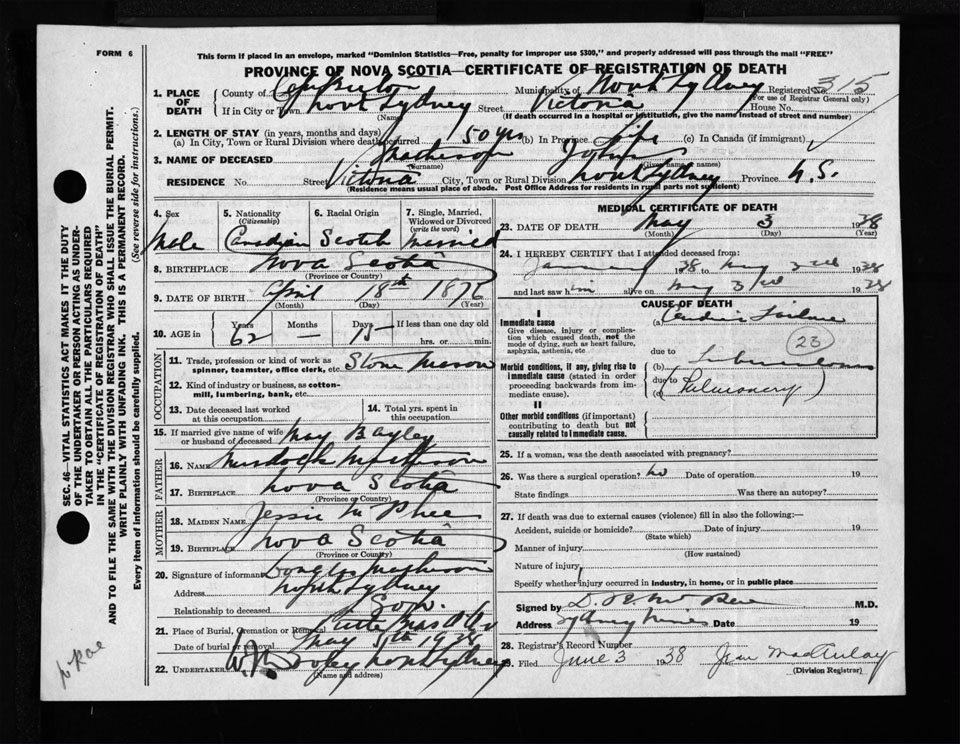 FORM 6
This form if placed in an envelope, marked "Dominion Statistics—Free, penalty for improper use $300," and properly addressed will pass through the mail "FREE"
PROVINCE OF NOVA SCOTIA—CERTIFICATE OF REGISTRATION OF DEATH
1. PLACE OF DEATH
County of Cape Breton Municipality of North Sydney Registered No. 315
(For use of Registrar General only)
If in City or Town North Sydney Street Victoria House No.
(Name) (If death occurred in a hospital or institution, give the name instead of street and number)
2. LENGTH OF STAY (in years, months and days)
(a) In City, Town or Rural Division where death occurred 50 yrs (b) In Province Life (c) In Canada (if immigrant)
3. NAME OF DECEASED Matheson John
(Surname) (Given or Christian names)
RESIDENCE No. Street Victoria City, Town or Rural Division North Sydney Province N.S.
(Residence means usual place of abode. Post Office Address for residents in rural parts not sufficient)
4. Sex 5. Nationality (Citizenship) 6. Racial Origin 7. Single, Married, Widowed or Divorced (write the word)
Male Canadian Scotch Married
8. BIRTHPLACE Nova Scotia
(Province or Country)
9. DATE OF BIRTH April 18th 1876
(Month) (Day) (Year)
10. AGE in Years Months Days If less than one day old
62 — 15 hrs. or min.
OCCUPATION
11. Trade, profession or kind of work as spinner, teamster, office clerk, etc. Stone Mason
12. Kind of industry or business, as cotton-mill, lumbering, bank, etc.
13. Date deceased last worked at this occupation
14. Total yrs. spent in this occupation
15. If married give name of wife or husband of deceased May Bayley
FATHER
16. NAME Murdoch Matheson
17. BIRTHPLACE Nova Scotia
(Province or Country)
MOTHER
18. MAIDEN NAME Jessie McPhee
19. BIRTHPLACE Nova Scotia
(Province or Country)
20. Signature of informant Douglas Matheson
Address North Sydney
Relationship to deceased Son
21. Place of Burial, Cremation or Removal Little Bras d'Or
Date of burial or removal May 1938
22. Undertaker North Sydney
(Name and address)
MEDICAL CERTIFICATE OF DEATH
23. DATE OF DEATH May 3 1938
(Month) (Day) (Year)
24. I HEREBY CERTIFY that I attended deceased from:
January 1938 to May 3rd 1938
and last saw him alive on May 3rd 1938
CAUSE OF DEATH
I
Immediate cause (a) Cardiac Failure
Give disease, injury or complication which caused death, not the mode of dying, such as heart failure, asphyxia, asthenia, etc.
23
Morbid conditions, if any, giving rise to immediate cause (stated in order proceeding backwards from immediate cause).
due to (b) Tuberculosis
due to (c) (Pulmonary)
II
Other morbid conditions (if important) contributing to death but not causally related to immediate cause.
25. If a woman, was the death associated with pregnancy?
26. Was there a surgical operation? No Date of operation 19
State findings Was there an autopsy?
27. If death was due to external causes (violence) fill in also the following:—
Accident, suicide or homicide? Date of injury 19
(State which)
Manner of injury
(How sustained)
Nature of injury
Specify whether injury occurred in industry, in home, or in public place
Signed by M.D.
Address Sydney Mines Date 19
28. Registrar's Record Number
29. Filed June 3 1938 Jean MacAulay
(Division Registrar)
SEC. 46—VITAL STATISTICS ACT MAKES IT THE DUTY OF THE UNDERTAKER OR PERSON ACTING AS UNDERTAKER TO OBTAIN ALL THE PARTICULARS REQUIRED IN THE "CERTIFICATE OF REGISTRATION OF DEATH"
AND TO FILE THE SAME WITH THE DIVISION REGISTRAR WHO SHALL ISSUE THE BURIAL PERMIT.
WRITE PLAINLY WITH UNFADING INK. THIS IS A PERMANENT RECORD.
Every item of information should be carefully supplied. (See reverse side for instructions.)